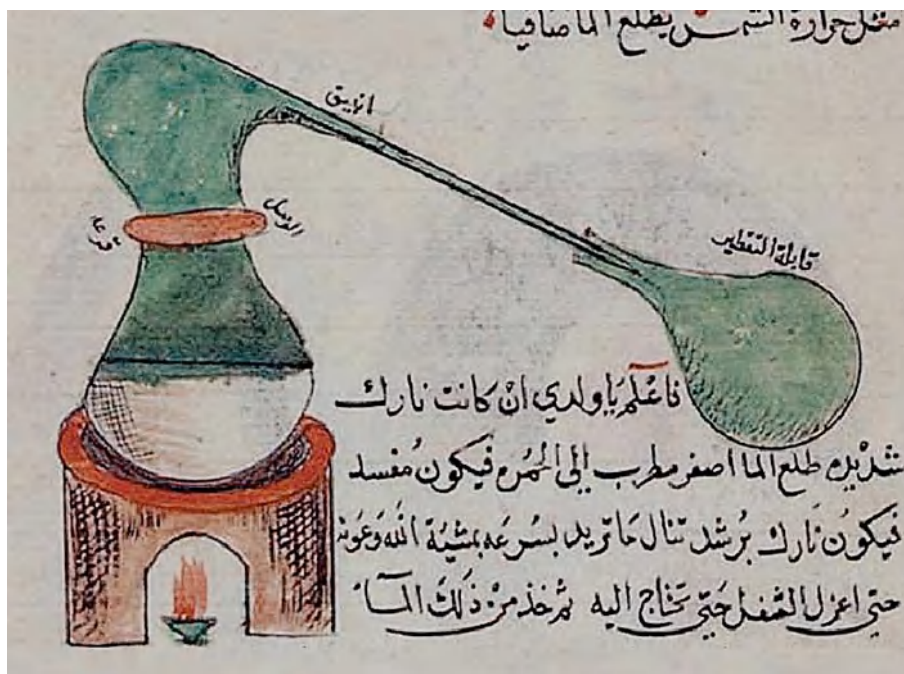 مثل حرارة الشمس يطلع الما صافيا
انبيق
الوصل
قرعة
قابلة التقطير
فاعْلم يَا ولدي انْ كانت نارك
شديده طلع الما اصفر مطرب الى الحمره فيكونُ مُفسد
فيكونُ نَارك برُشد تنال ما تريد بسرعَه بمشيّة اللّه وَعَونه
حتى اعزل الثفل حَتى تحتاج اليه ثم خذ منْ ذلكَ المآء